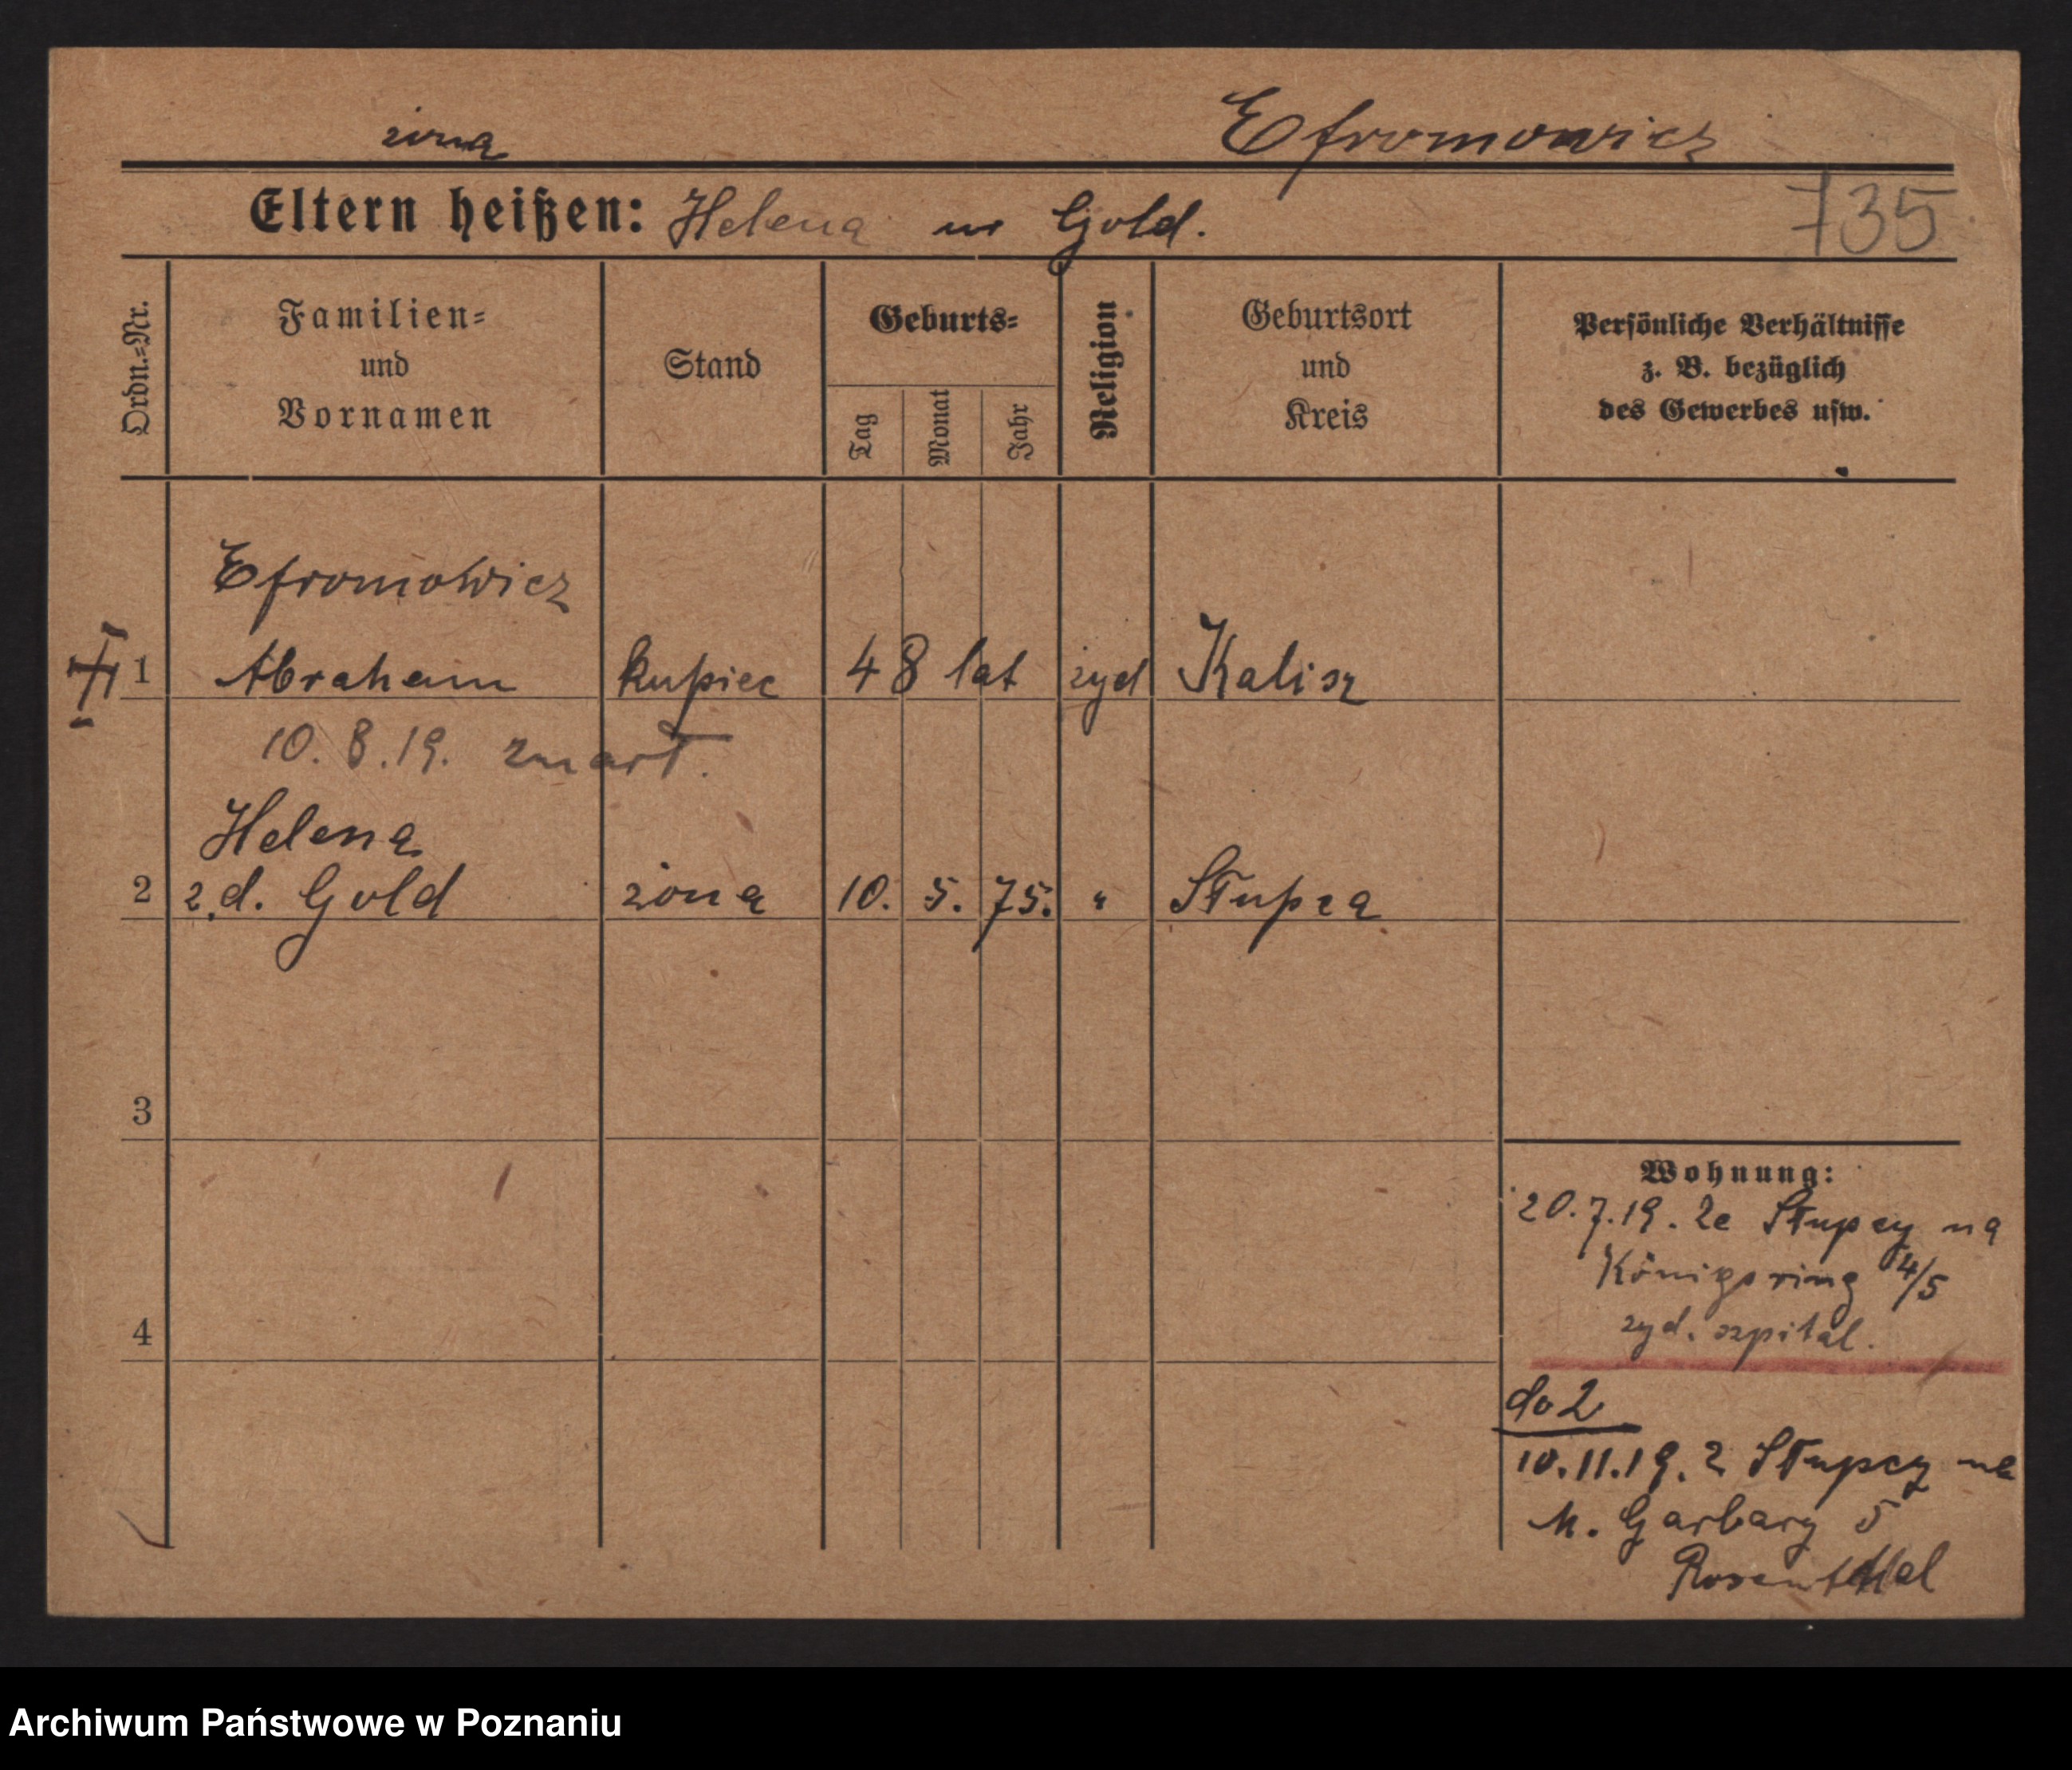 żona Efromowicz
Eltern heißen: Helena ur Gold.
735
Ordn.=Nr.
Familien=
und
Vornamen
Stand
Geburts=
Tag
Monat
Jahr
Religion
Geburtsort
und
Kreis
Persönliche Verhältnisse
z. B. bezüglich
des Gewerbes usw.
Efromowicz
1 Abraham kupiec 48 lat żyd Kalisz
10. 8. 19. zmarł.
Helena
2 z d. Gold żona 10. 5. 75. " Słupca
3
Wohnung:
20. 7. 19. ze Słupcy na
Königsring 4/5
żyd. szpital.
4
do 2
10. 11. 19. z Słupcy na
M. Garbary 5
Rosenthal
Archiwum Państwowe w Poznaniu